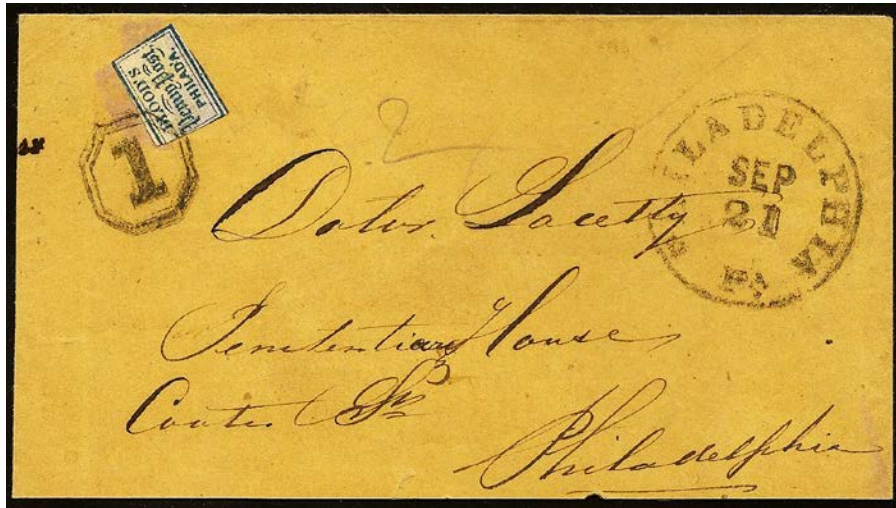 BLOOD'S
Penny Post.
PHILADA.
1
PHILADELPHIA
SEP
21
PA
Doctor. Lacetty
Penitentiary House
Coates St
Philadelphia